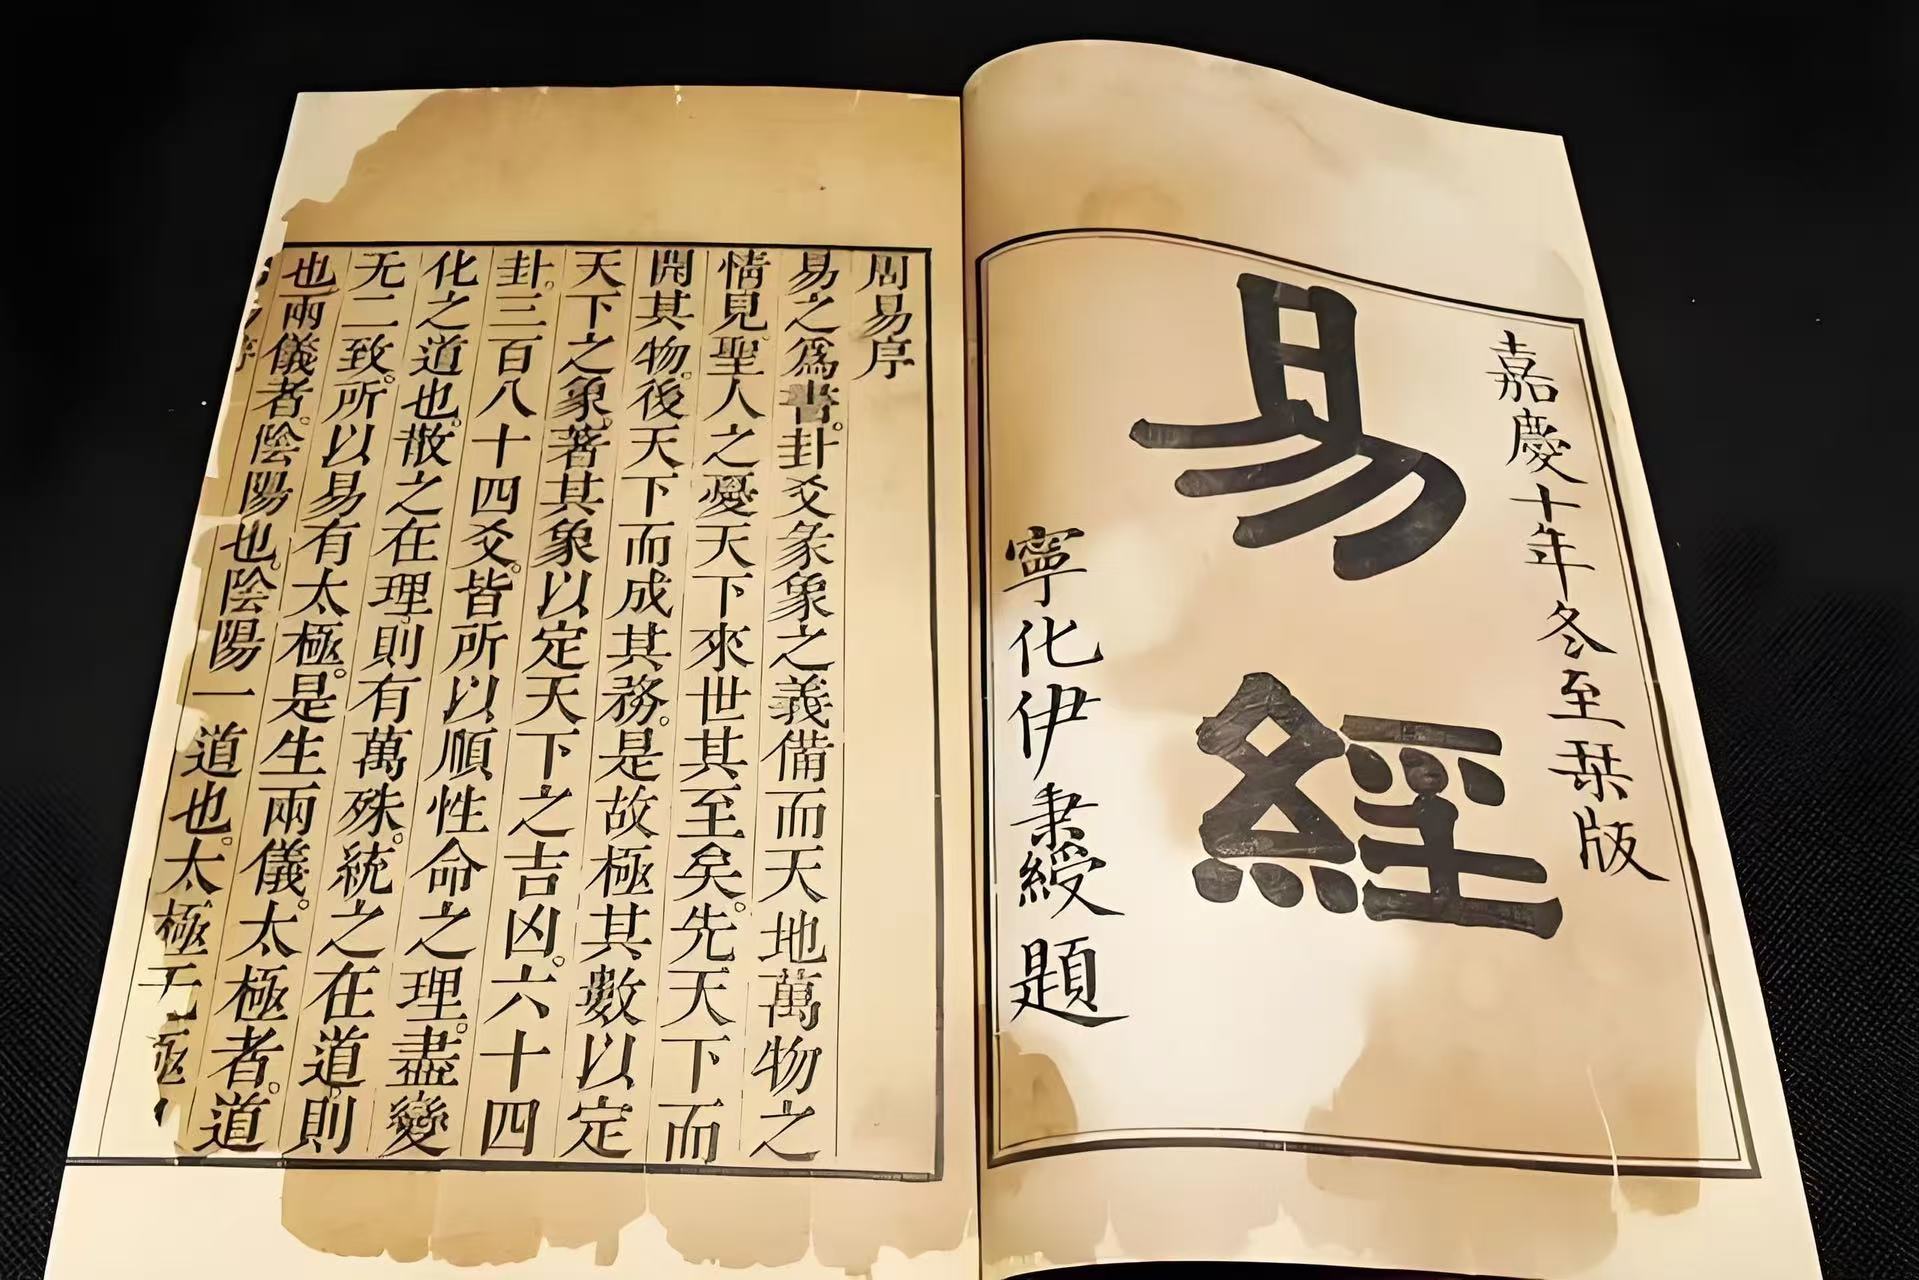 嘉慶十年冬至栞版
易經
寧化伊秉綬題
周易序
易之爲書。卦爻彖象之義備而天地萬物之
情見。聖人之憂天下來世其至矣。先天下而
開其物。後天下而成其務。是故極其數以定
天下之象。著其象以定天下之吉凶。六十四
卦。三百八十四爻。皆所以順性命之理。盡變
化之道也。散之在理則有萬殊。統之在道。則
无二致。所以易有太極。是生兩儀。太極者。道
也。兩儀者。陰陽也。陰陽一道也。太極无極